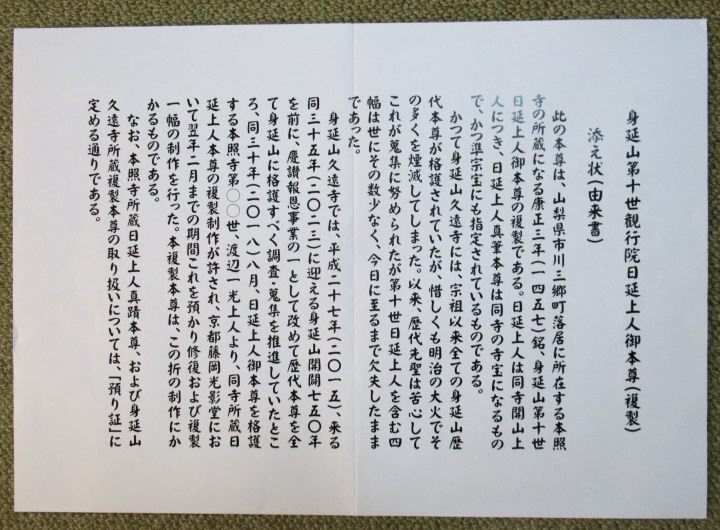 身延山第十世観行院日延上人御本尊(複製)
添え状(由来書)
此の本尊は、山梨県市川三郷町落居に所在する本照
寺の所蔵になる康正三年(一四五七)銘、身延山第十世
日延上人御本尊の複製である。日延上人は同寺開山上
人につき、日延上人真筆本尊は同寺の寺宝になるもの
で、かつ準宗宝にも指定されているものである。
かつて身延山久遠寺には、宗祖以来全ての身延山歴
代本尊が格護されていたが、惜しくも明治の大火でそ
の多くを煙滅してしまった。以来、歴代先聖は苦心して
これが蒐集に努められたが第十世日延上人を含む四
幅は世にその数少なく、今日に至るまで欠失したまま
であった。
身延山久遠寺では、平成二十七年(二〇一五)、来る
同三十五年(二〇二三)に迎える身延山開闢七五〇年
を前に、慶讃報恩事業の一として改めて歴代本尊を全
て身延山に格護すべく調査・蒐集を推進していたとこ
ろ、同三十年(二〇一八)八月、日延上人御本尊を格護
する本照寺第〇〇世、渡辺一光上人より、同寺所蔵日
延上人本尊の複製制作が許され、京都藤岡光影堂にお
いて翌年二月までの期間これを預かり修復および複製
一幅の制作を行った。本複製本尊は、この折の制作にか
かるものである。
なお、本照寺所蔵日延上人真蹟本尊、および身延山
久遠寺所蔵複製本尊の取り扱いについては、「預り証」に
定める通りである。